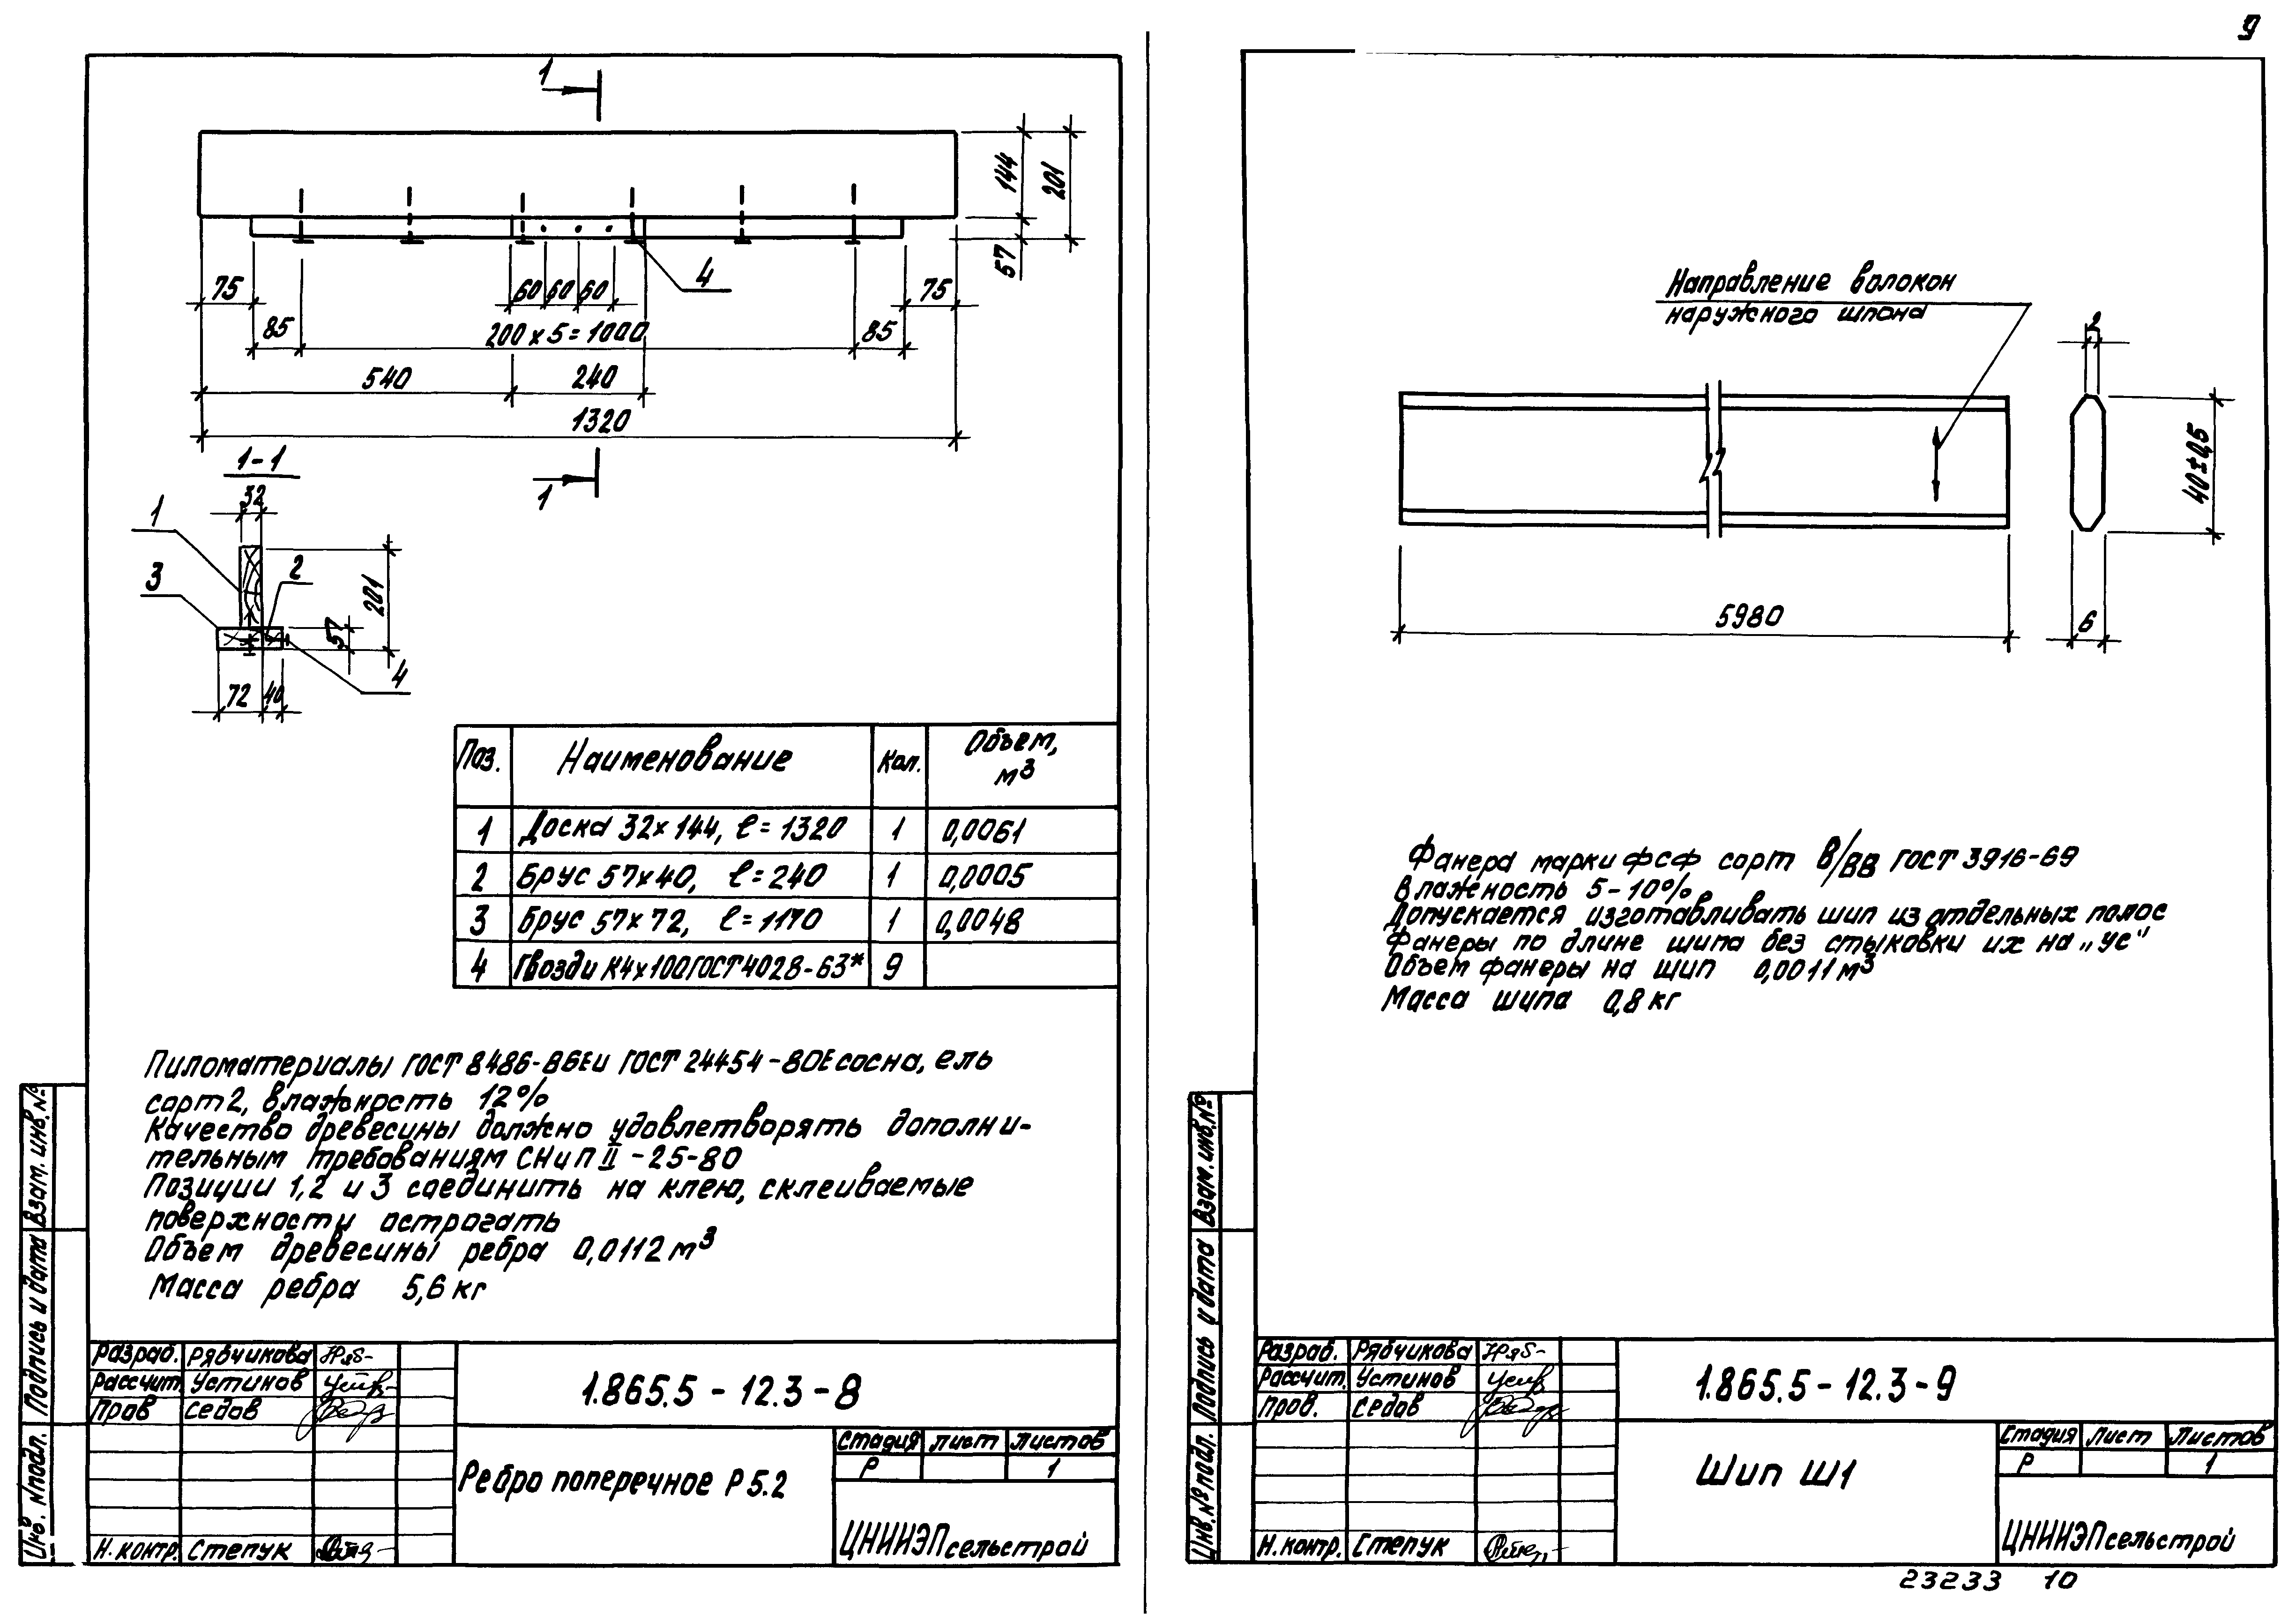 9
1
144
201
57
75
60 60 60
4
75
85
200 x 5 = 1000
85
540
240
1320
1
1-1
32
1
3
2
201
57
4
72
40
Поз. Наименование Кол. Объем, м³
1 Доска 32х144, ℓ=1320 1 0,0061
2 Брус 57х40, ℓ=240 1 0,0005
3 Брус 57х72, ℓ=1170 1 0,0048
4 Гвозди К4х100 ГОСТ 4028-63* 9
Пиломатериалы ГОСТ 8486-86Е и ГОСТ 24454-80Е сосна, ель
сорт 2, влажность 12%
Качество древесины должно удовлетворять дополни-
тельным требованиям СНиП II-25-80
Позиции 1,2 и 3 соединить на клею, склеиваемые
поверхности острогать
Объем древесины ребра 0,0112 м³
Масса ребра 5,6 кг
Взам. инв. №
Подпись и дата
Инв. № подл.
Разраб. Рябчикова
Рассчит. Устинов
Пров Седов
Н. контр. Степук
1.865.5-12.3-8
Ребро поперечное Р 5.2
Стадия Лист Листов
Р 1
ЦНИИЭПсельстрой
Направление волокон
наружного шпона
2
40±0,5
5980
6
Фанера марки ФСФ сорт В/ВВ ГОСТ 3916-69
Влажность 5-10%
Допускается изготавливать шип из отдельных полос
фанеры по длине шипа без стыковки их на „ус"
Объем фанеры на шип 0,0011 м³
Масса шипа 0,8 кг
Взам. инв. №
Подпись и дата
Инв. № подл.
Разраб. Рябчикова
Рассчит. Устинов
Пров. Седов
Н. контр. Степук
1.865.5-12.3-9
Шип Ш1
Стадия Лист Листов
Р 1
ЦНИИЭПсельстрой
23233 10